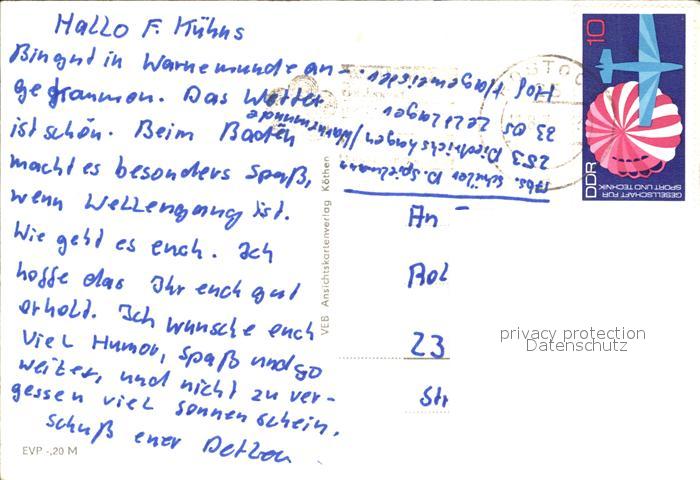 Hallo F. Kühns
Bin gut in Warnemunde an-
gekommen. Das Wetter
ist schön. Beim Baden
macht es besonders Spaß,
wenn Wellengang ist.
Wie geht es euch. Ich
hoffe das Ihr euch gut
erhold. Ich wünsche euch
viel Humor, Spaß und so
weiter, und nicht zu ver-
gessen viel sonnenschein.
schuß euer
Abs. Schüler D. Spielmann
253 Diedrichshagen/Warnemunde
23 05
Zeltlager
Hof Hagemeister
An
Rol
23
Str
VEB Ansichtskartenverlag Köthen
EVP -,20 M
10
DDR
GESELLSCHAFT FÜR
SPORT UND TECHNIK
privacy protection
Datenschutz